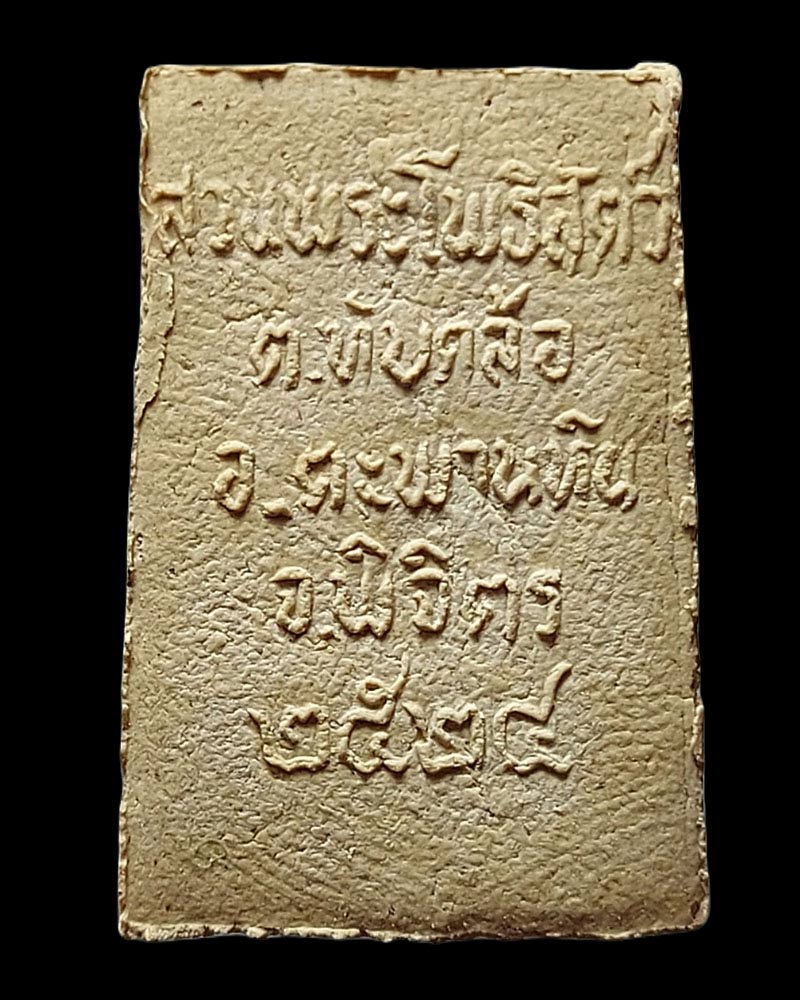 สวนพระโพธิสัตว์
ต.ทับคล้อ
อ.ตะพานหิน
จ.พิจิตร
๒๕๒๔